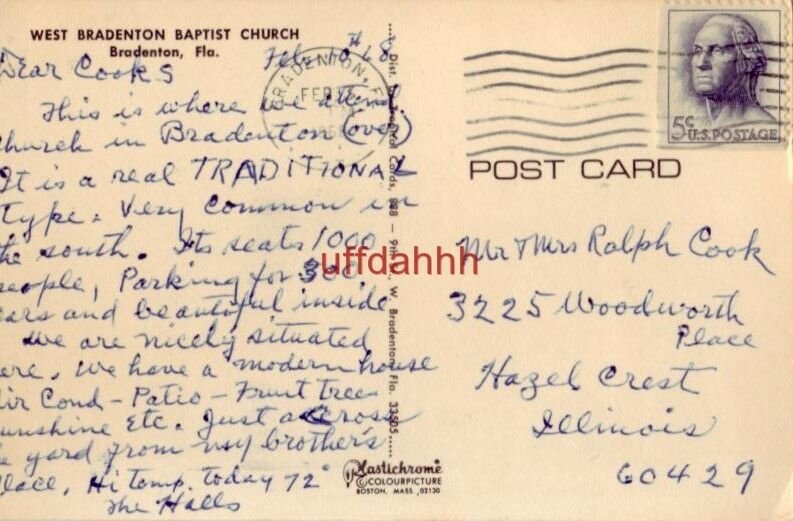 WEST BRADENTON BAPTIST CHURCH
Bradenton, Fla.
Dear Cooks
This is where we attend
church in Bradenton (over)
It is a real TRADITIONAL
type. Very common in
the south. Its seats 1000
people, Parking for 300
cars and beautiful inside
We are nicely situated
here. We have a modern house
Air Cond - Patio - Fruit trees
sunshine Etc. Just across
the yard from my brother's
place. Hi temp. today 72°
The Halls
BRADENTON, FL
FEB
5¢ U.S. POSTAGE
POST CARD
Mr & Mrs Ralph Cook
3225 Woodworth
Place
Hazel Crest
Illinois
60429
Cards, 808 - W. Bradenton, Fla. 33505
Plastichrome
© COLOURPICTURE
BOSTON, MASS. 02130
uffdahhh